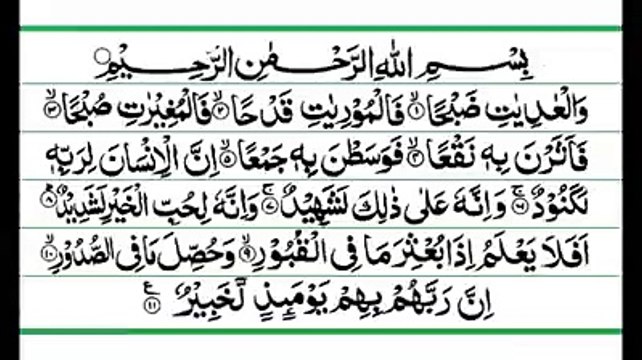 بِسْمِ اللهِ الرَّحْمٰنِ الرَّحِيْمِ
وَالْعٰدِيٰتِ ضَبْحًا ۙ﴿۱﴾ فَالْمُوْرِيٰتِ قَدْحًا ۙ﴿۲﴾ فَالْمُغِيْرٰتِ صُبْحًا ۙ﴿۳﴾
فَاَثَرْنَ بِهٖ نَقْعًا ۙ﴿۴﴾ فَوَسَطْنَ بِهٖ جَمْعًا ۙ﴿۵﴾ اِنَّ الْاِنْسَانَ لِرَبِّهٖ
لَكَنُوْدٌ ۚ﴿۶﴾ وَاِنَّهٗ عَلٰى ذٰلِكَ لَشَهِيْدٌ ۚ﴿۷﴾ وَاِنَّهٗ لِحُبِّ الْخَيْرِ لَشَدِيْدٌ ؕ﴿۸﴾
اَفَلَا يَعْلَمُ اِذَا بُعْثِرَ مَا فِى الْقُبُوْرِ ۙ﴿۹﴾ وَحُصِّلَ مَا فِى الصُّدُوْرِ ۙ﴿۱۰﴾
اِنَّ رَبَّهُمْ بِهِمْ يَوْمَئِذٍ لَّخَبِيْرٌ ﴿۱۱﴾ ع